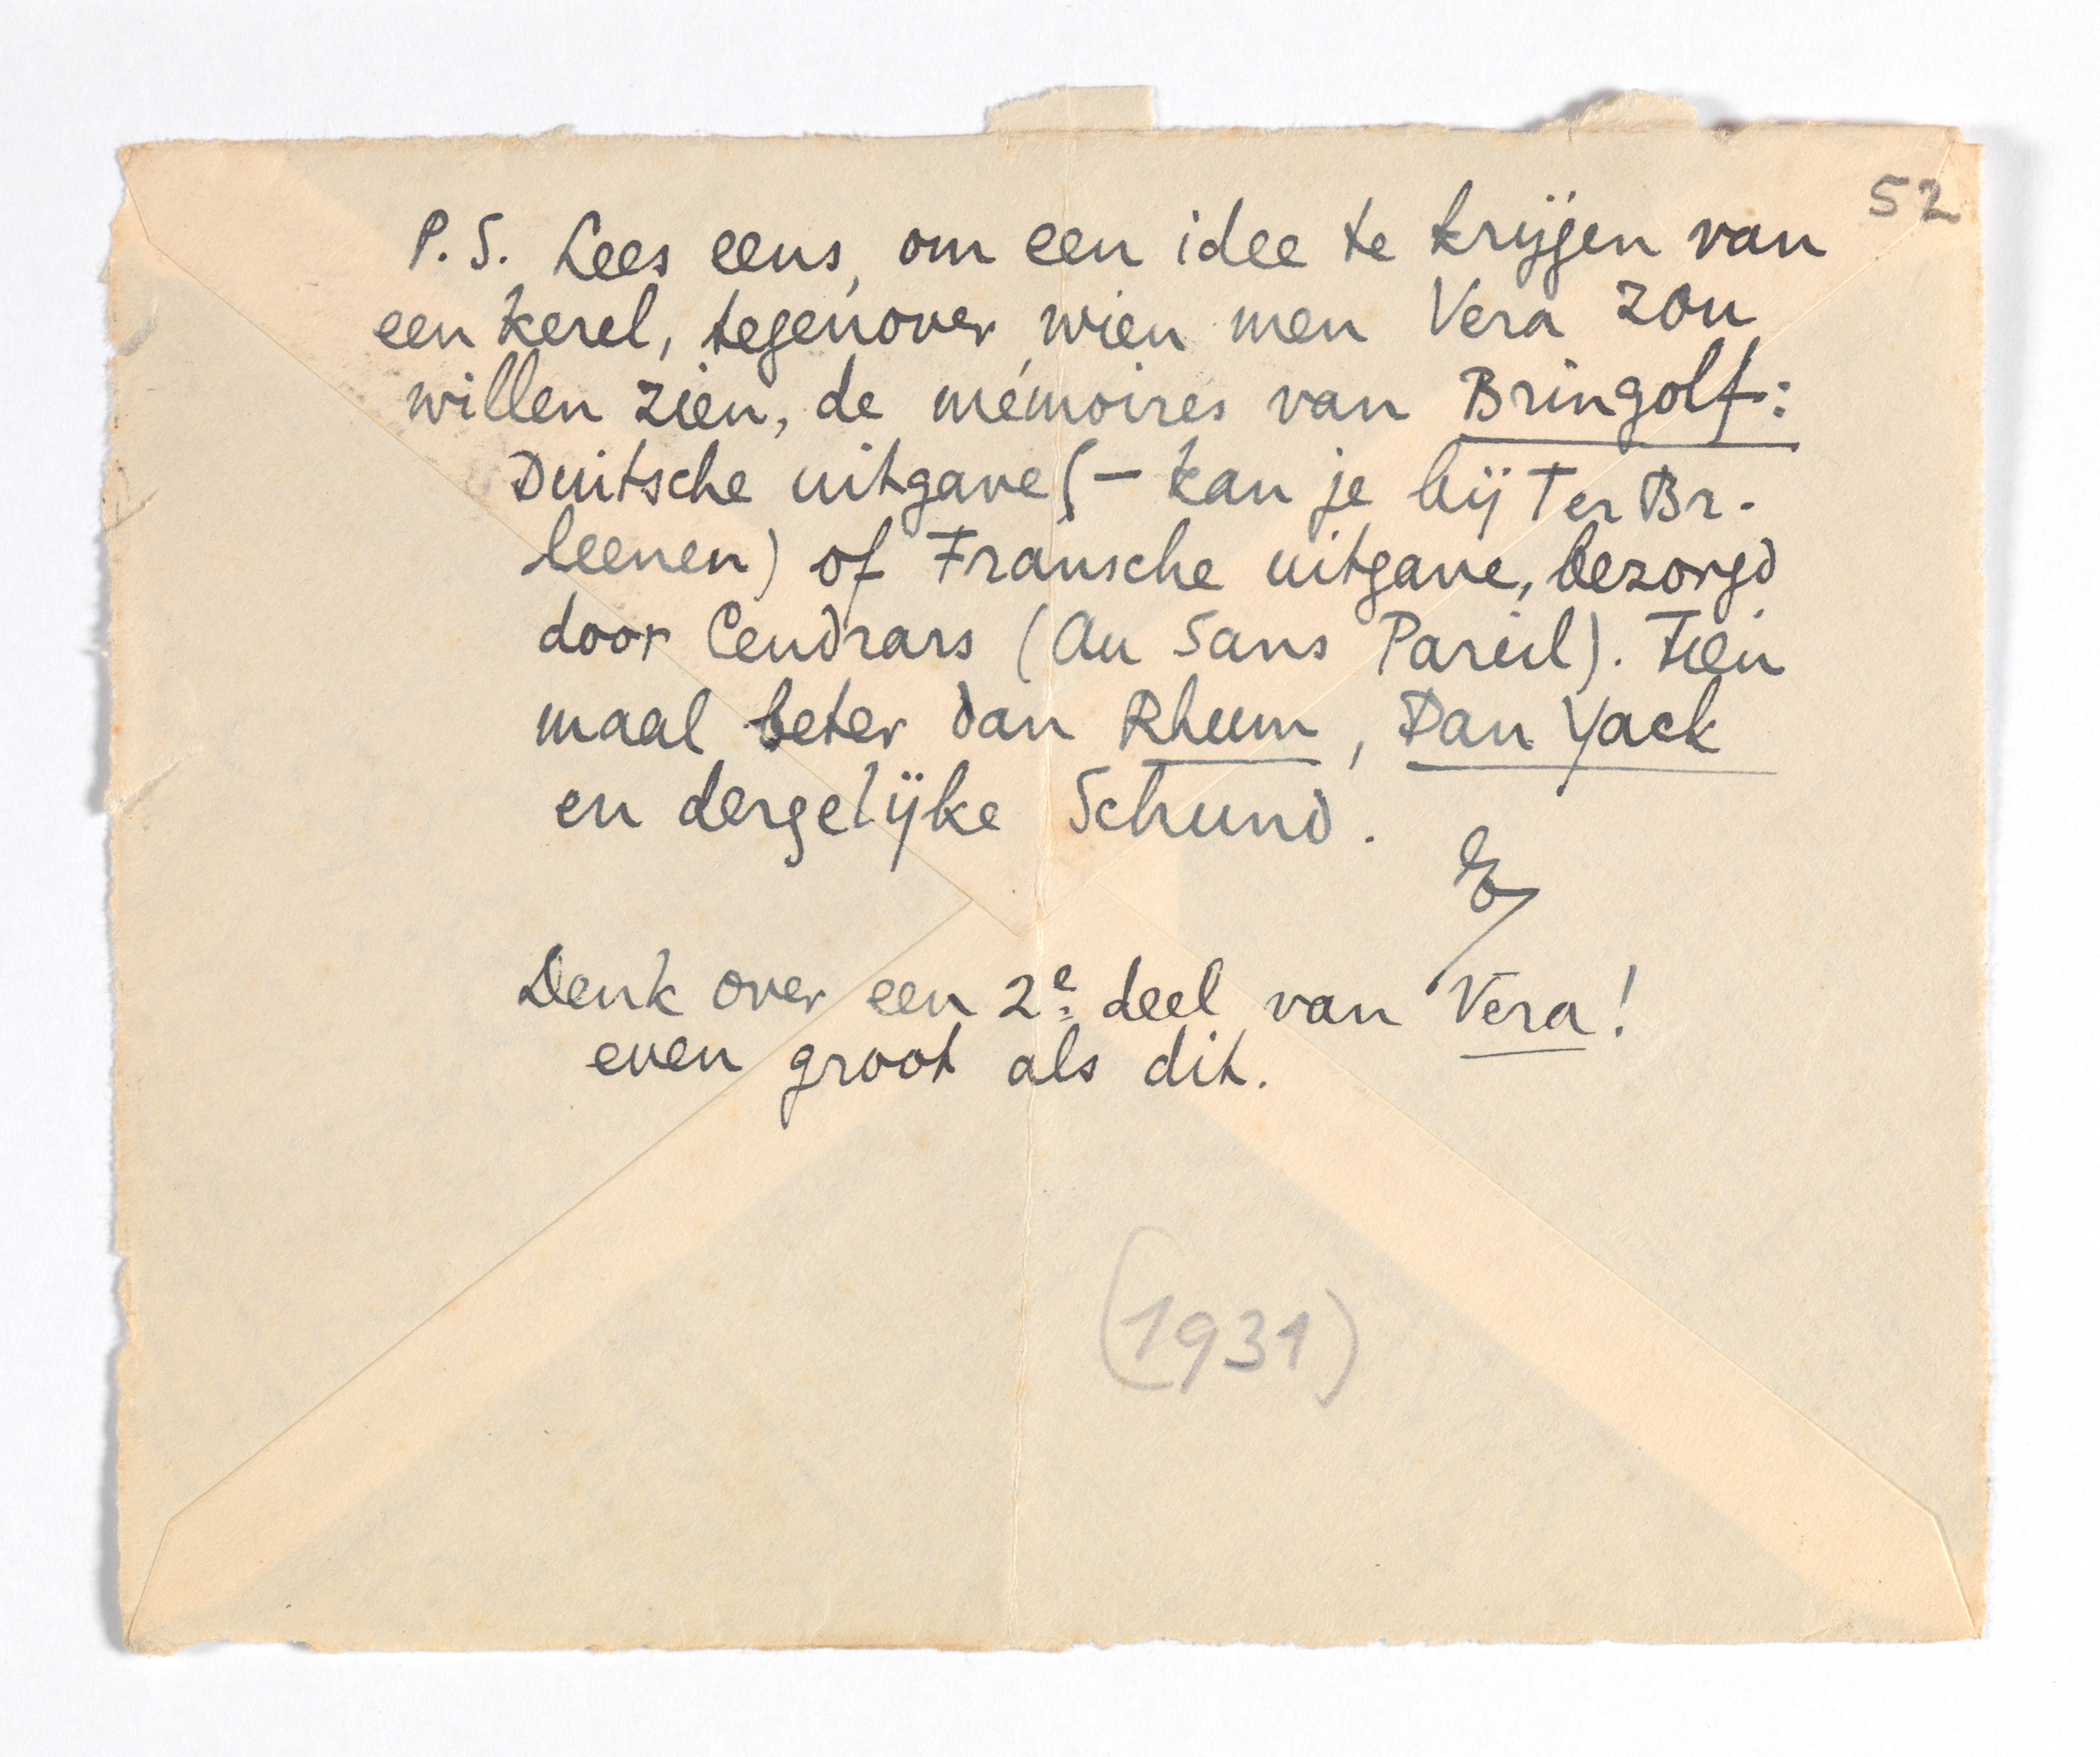 52
P.S. Lees eens, om een idee te krijgen van
een kerel, tegenover wien men Vera zou
willen zien, de mémoires van Bringolf:
Duitsche uitgave (– kan je bij Ter Br.
leenen) of Fransche uitgave, bezorgd
door Cendrars (Au Sans Pareil). Tien
maal beter dan Rhum, Dan Yack
en dergelijke Schund.
E
Denk over een 2e deel van Vera!
even groot als dit.
(1931)